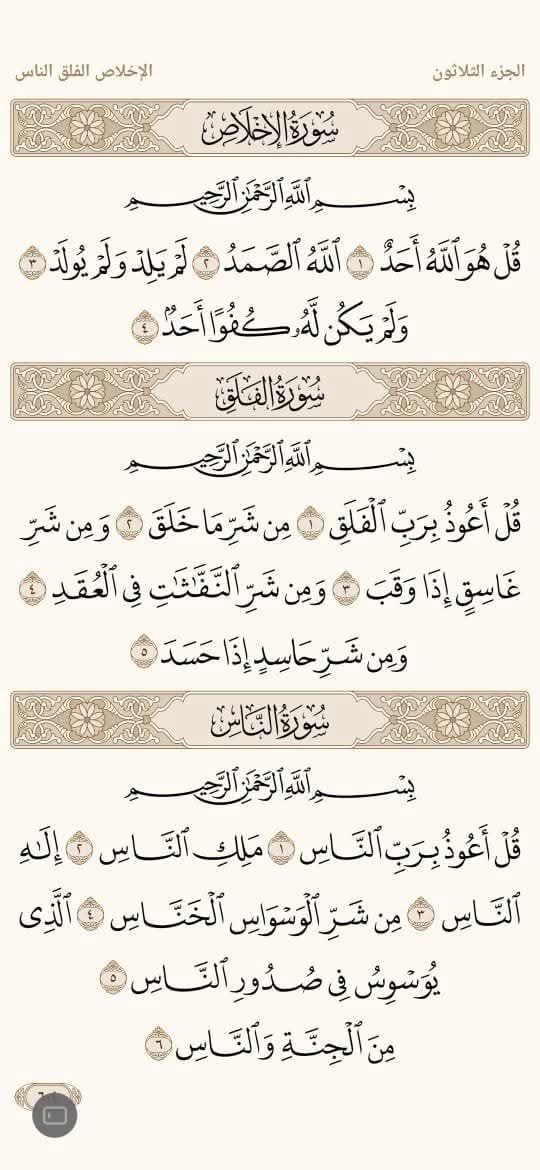 الجزء الثلاثون
الإخلاص الفلق الناس
سُورَةُ الإِخْلَاصِ
بِسْمِ ٱللَّهِ ٱلرَّحْمَٰنِ ٱلرَّحِيمِ
قُلْ هُوَ ٱللَّهُ أَحَدٌ ١ ٱللَّهُ ٱلصَّمَدُ ٢ لَمْ يَلِدْ وَلَمْ يُولَدْ ٣
وَلَمْ يَكُن لَّهُۥ كُفُوًا أَحَدٌۢ ٤
سُورَةُ الفَلَقِ
بِسْمِ ٱللَّهِ ٱلرَّحْمَٰنِ ٱلرَّحِيمِ
قُلْ أَعُوذُ بِرَبِّ ٱلْفَلَقِ ١ مِن شَرِّ مَا خَلَقَ ٢ وَمِن شَرِّ
غَاسِقٍ إِذَا وَقَبَ ٣ وَمِن شَرِّ ٱلنَّفَّٰثَٰتِ فِى ٱلْعُقَدِ ٤
وَمِن شَرِّ حَاسِدٍ إِذَا حَسَدَ ٥
سُورَةُ النَّاسِ
بِسْمِ ٱللَّهِ ٱلرَّحْمَٰنِ ٱلرَّحِيمِ
قُلْ أَعُوذُ بِرَبِّ ٱلنَّاسِ ١ مَلِكِ ٱلنَّاسِ ٢ إِلَٰهِ
ٱلنَّاسِ ٣ مِن شَرِّ ٱلْوَسْوَاسِ ٱلْخَنَّاسِ ٤ ٱلَّذِى
يُوَسْوِسُ فِى صُدُورِ ٱلنَّاسِ ٥
مِنَ ٱلْجِنَّةِ وَٱلنَّاسِ ٦